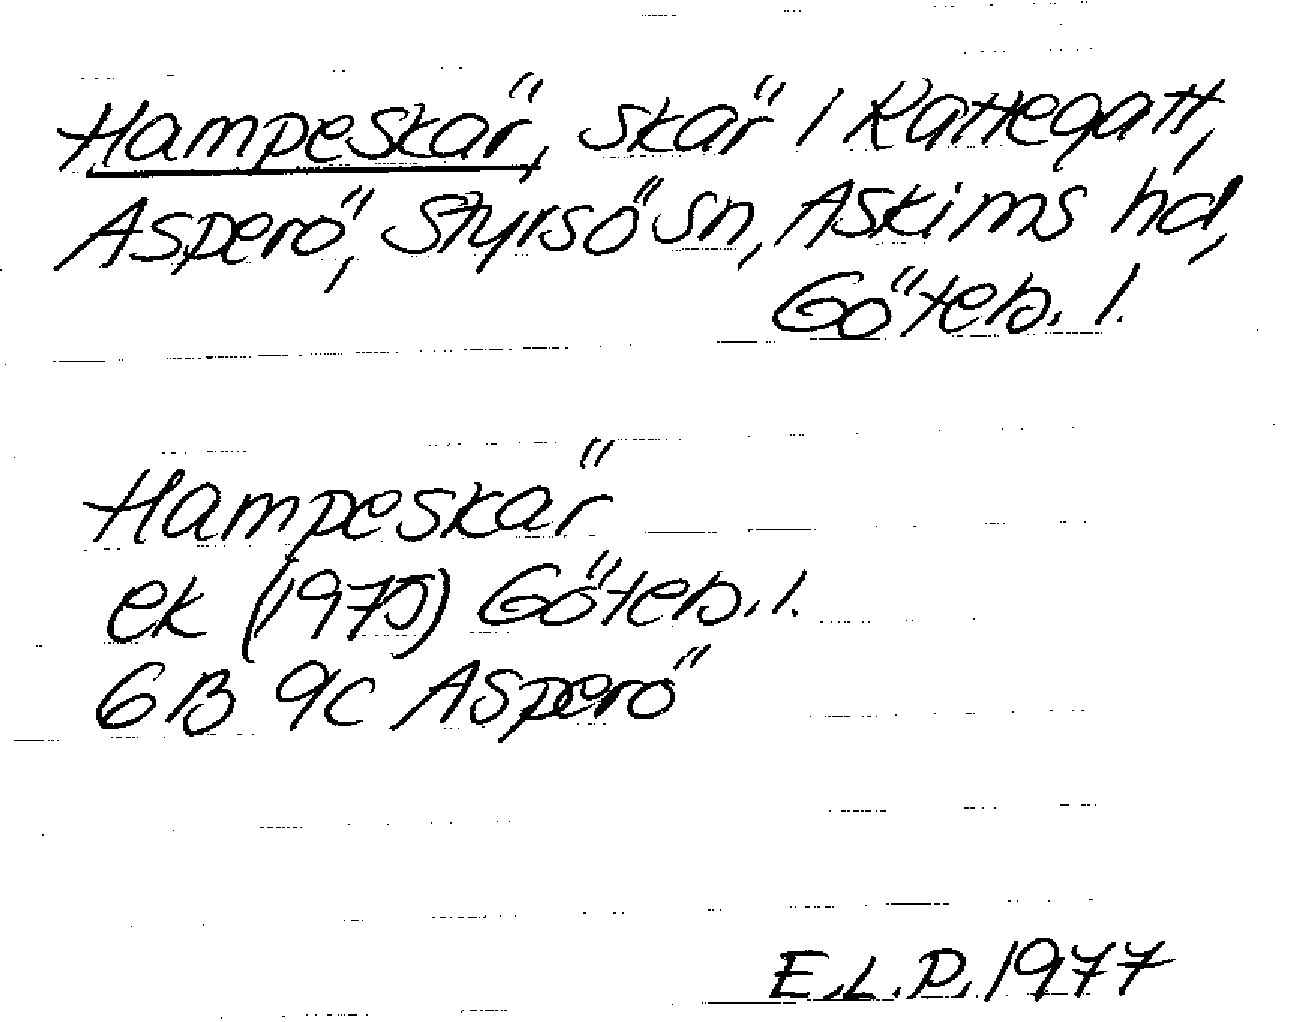 Hampeskär, skär i Kattegatt,
Asperö, Styrsö sn, Askims hd,
Göteb. l.
Hampeskär
ek (1975) Göteb. l.
6B 9c Asperö
E.L.P. 1977